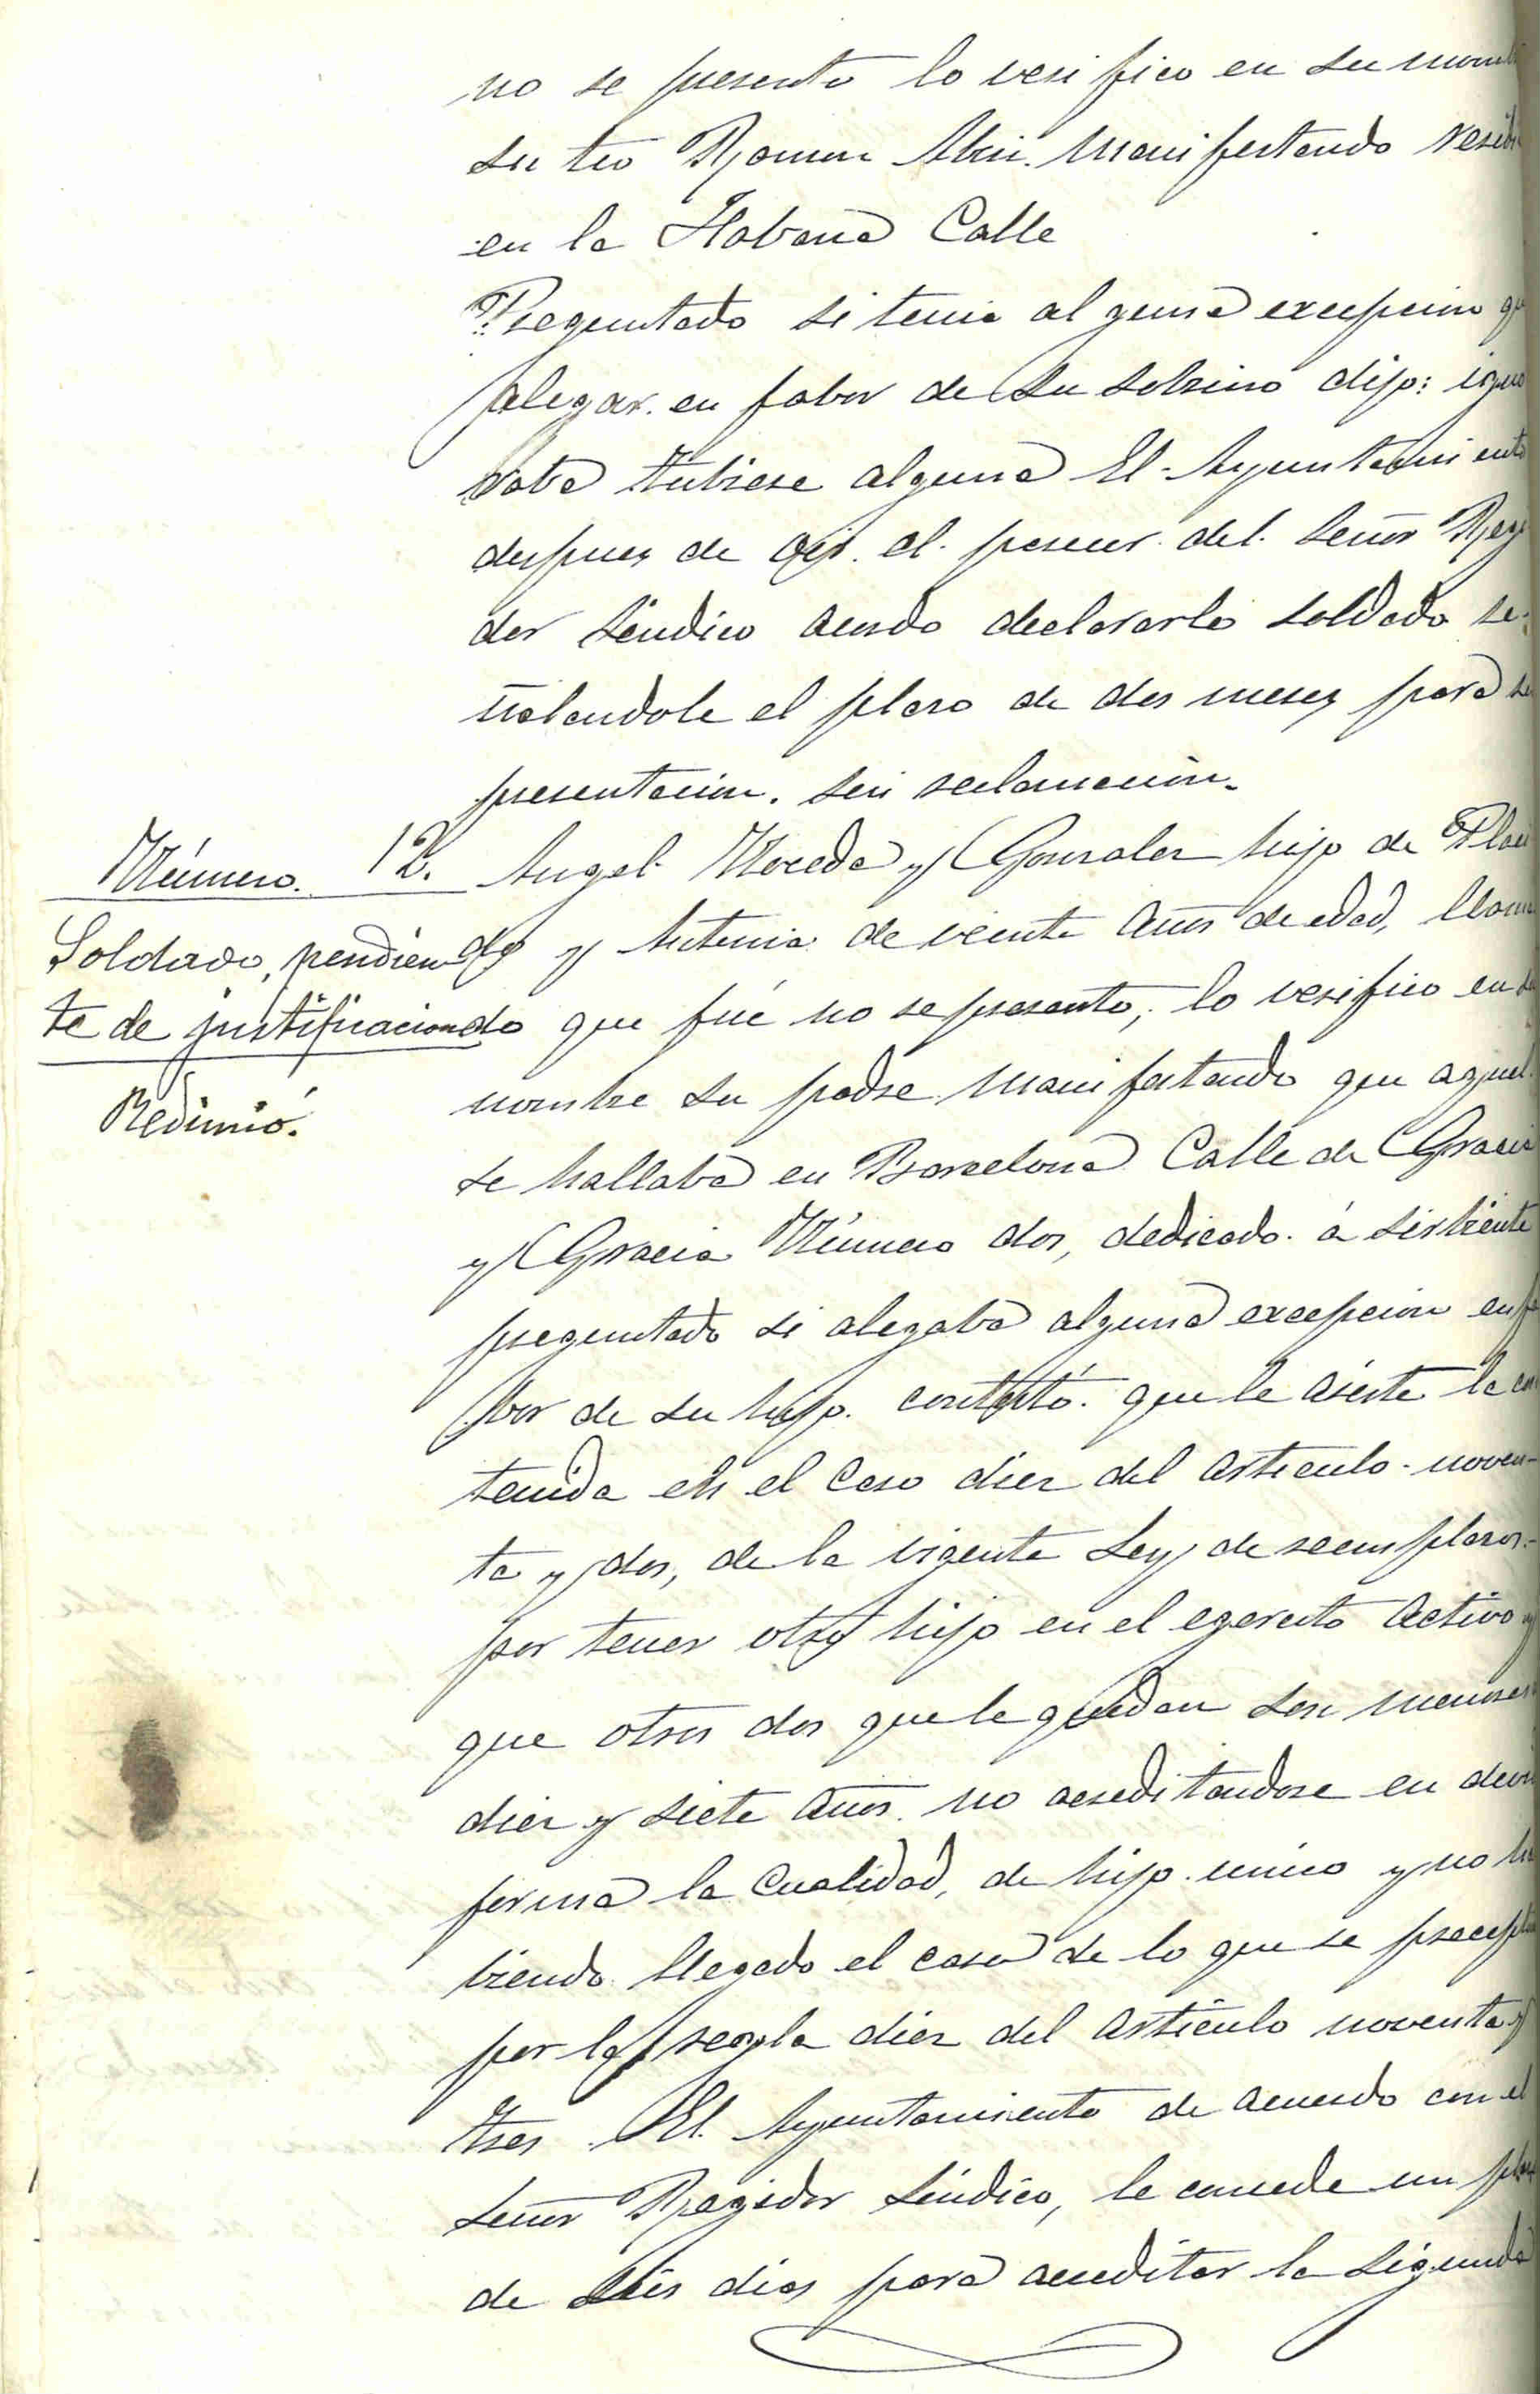 no se presento lo verifico en su nomb
su tio Ramon Abri. Manifestando resid
en la Habana Calle
Preguntado si tenia alguna excepcion q
alegar en fabor de su sobrino dijo: igno
raba tubiese alguna El Ayuntamiento
despues de oir el parecer del Señor Regi
dor Sindico acordo declararlo soldado se-
ñalandole el plazo de dos meses para su
presentacion. Sin reclamacion.
Número 12. Angel Moreda y Gonzalez hijo de Placi
Soldado, pendien
te de justificacion
Redimió.
do y Antonia de veinte años de edad, llama
do que fué no se presento, lo verifico en su
nombre su padre manifestando que aquel
se hallaba en Barcelona Calle de Gracia
y Gracia Número dos, dedicado á sirbiente
preguntado si alegaba alguna excepcion en fa
bor de su hijo. contestó que le asiste la con
tenida en el caso diez del articulo noven-
ta y dos, de la vigente Ley de reemplazos.
por tener otro hijo en el egercito activo y
que otros dos que le quedan son menores
diez y siete años. no acreditandose en devi
forma la cualidad, de hijo unico y no ha
biendo llegado el caso de lo que se precept
por la regla diez del articulo noventa y
tres. El Ayuntamiento de acuerdo con el
Señor Regidor Sindico, le concede un plazo
de seis dias para acreditar la segunda